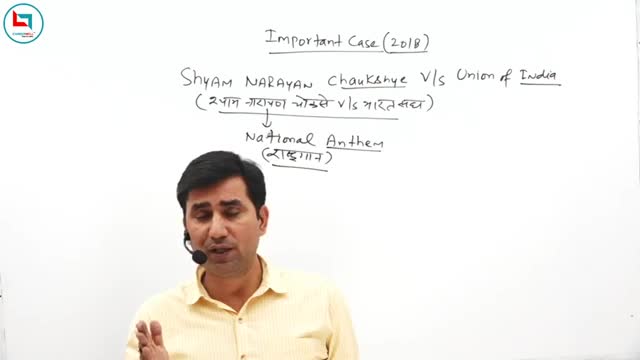 Important Case (2018)
SHYAM NARAYAN Chaukshye V/S Union of India
(श्याम नारायण चौकसे V/S भारत संघ)
National Anthem
(राष्ट्रगान)